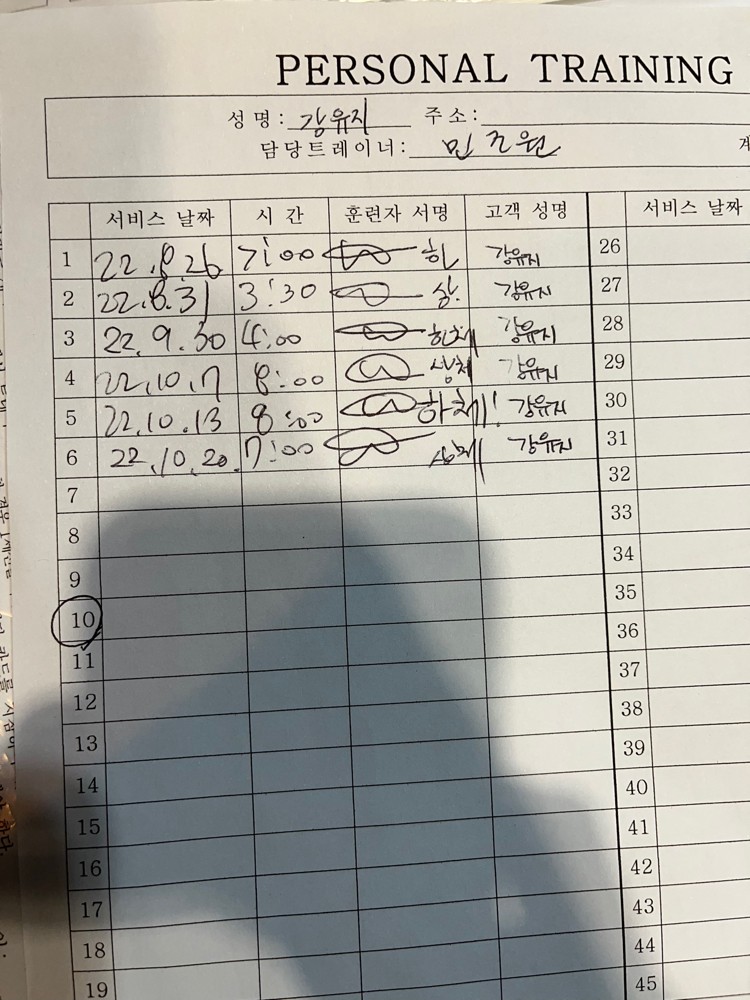 PERSONAL TRAINING
성명: 강유지 주소:
담당트레이너: 민조원
서비스 날짜 시간 훈련자 서명 고객 성명 서비스 날짜
1 22.8.26 7:00 하 강유지 26
2 22.8.31 3:30 상. 강유지 27
3 22.9.30 4:00 하체 강유지 28
4 22.10.7 8:00 상체 강유지 29
5 22.10.13 8:00 하체! 강유지 30
6 22.10.20. 7:00 상체 강유지 31
7 32
8 33
9 34
10 35
11 36
12 37
13 38
14 39
15 40
16 41
17 42
18 43
19 44
45